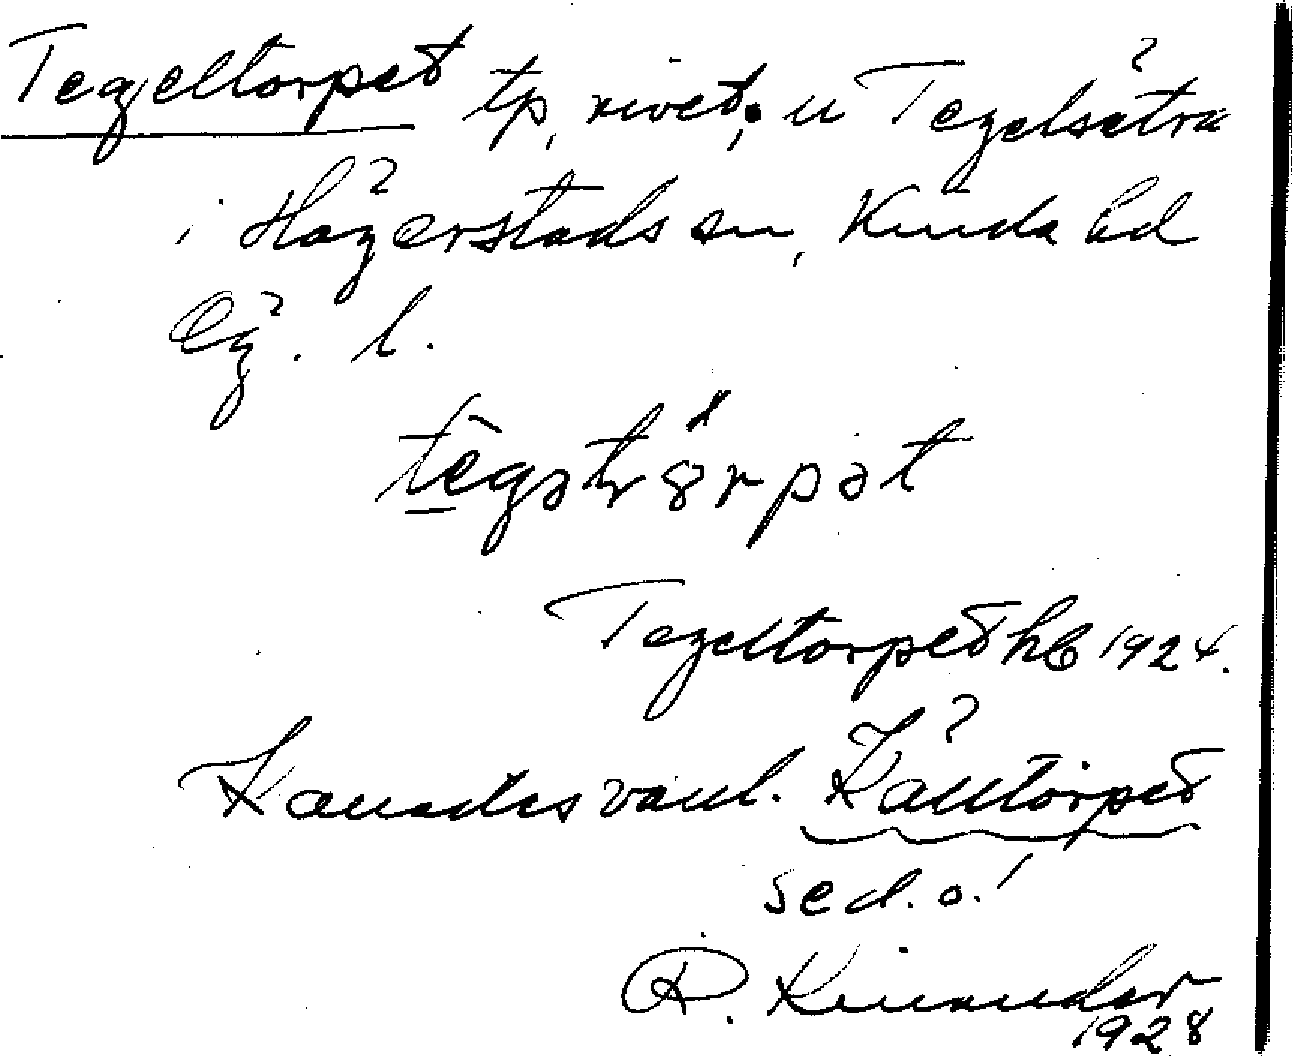 Tegeltorpet tp, rivet, u Tegelsätra
i Hägerstads sn, Kinda hd
Ög. l.
tègəltɷrpət
Tegeltorpet hb 1924.
Kallades vanl. Kålltorpet
se d. o.!
R. Kinander
1928